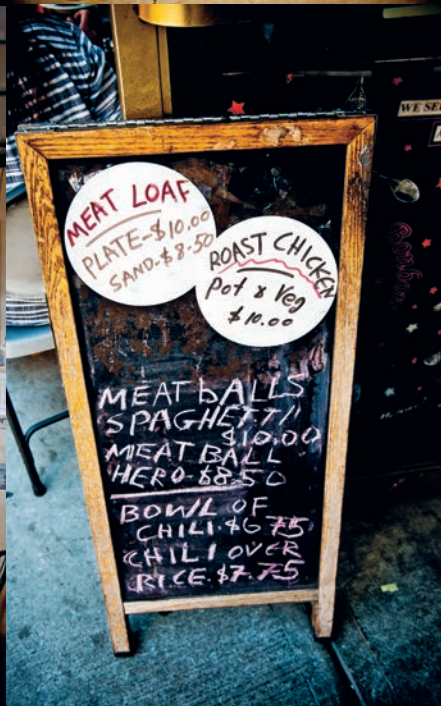 MEAT LOAF
PLATE-$10.00
SAND.$8.50
ROAST CHICKEN
Pot & Veg
$10.00
MEATbALLS
SPAGHETTI
$10.00
MEATBALL
HERO-$8.50
BOWL OF
CHILI.$6.75
CHILI OVER
RICE.$7.75
WE SE